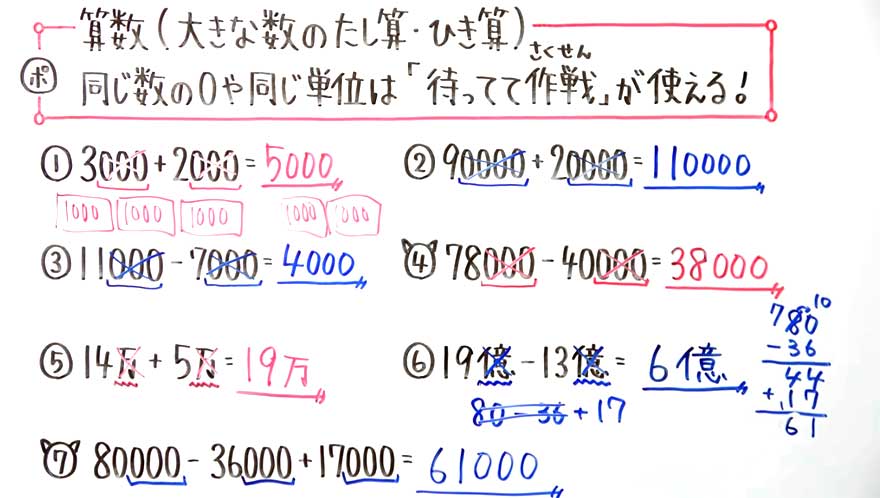 算数(大きな数のたし算・ひき算)
さくせん
ポ 同じ数の0や同じ単位は「待ってて作戦」が使える!
① 3000+2000=5000
② 90000+20000=110000
1000 1000 1000 1000 1000
③ 11000-7000=4000
④ 78000-40000=38000
⑤ 14万+5万=19万
⑥ 19億-13億=6億
80-36+17
10
780
-36
44
+17
61
⑦ 80000-36000+17000=61000